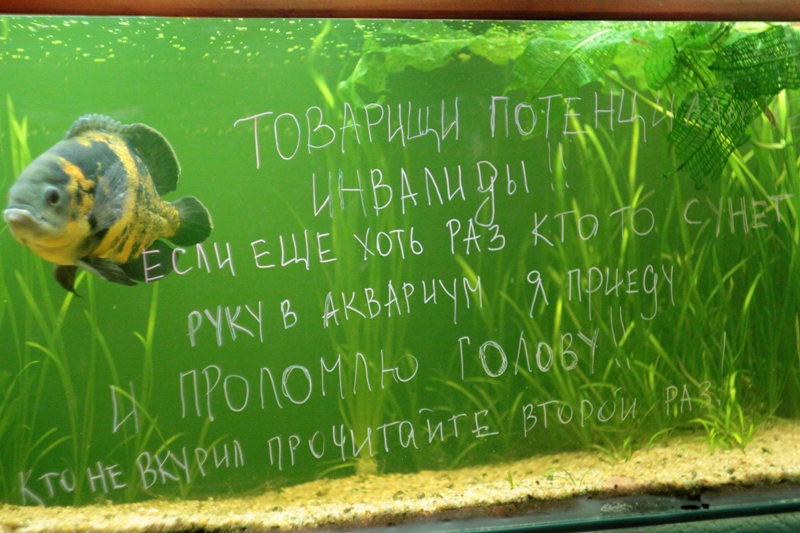 ТОВАРИЩИ ПОТЕНЦИАЛЬНЫЕ
ИНВАЛИДЫ!!
ЕСЛИ ЕЩЕ ХОТЬ РАЗ КТО ТО СУНЕТ
РУКУ В АКВАРИУМ Я ПРИЕДУ
И ПРОЛОМЛЮ ГОЛОВУ!!
КТО НЕ ВКУРИЛ ПРОЧИТАЙТЕ ВТОРОЙ РАЗ!